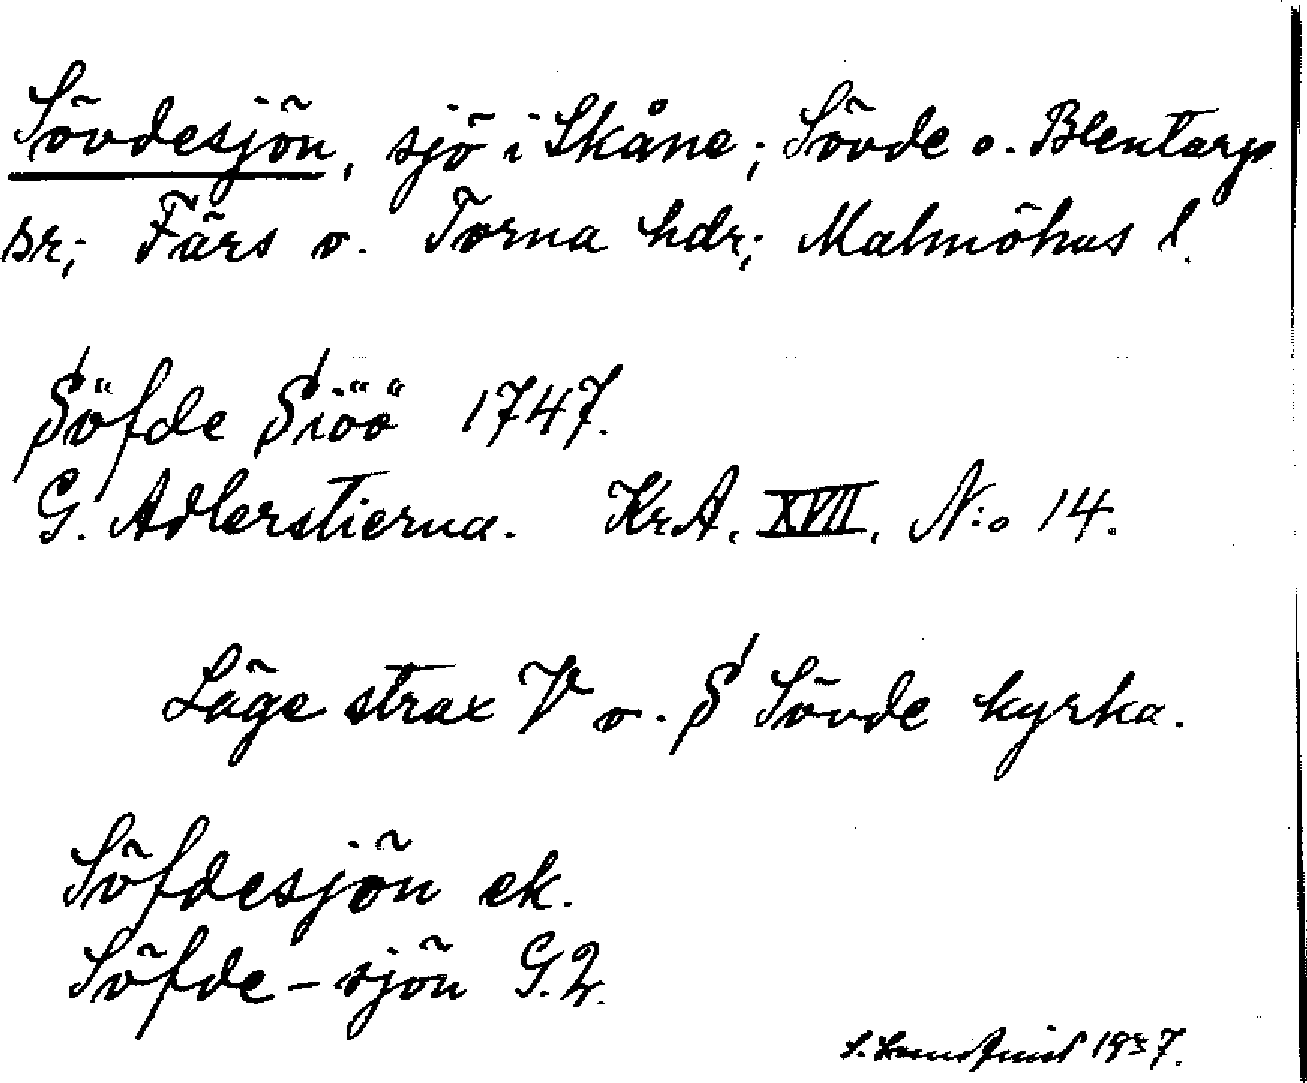 Sövdesjön, sjö i Skåne; Sövde o. Blentarps
sr; Färs o. Torna hdr; Malmöhus l.
Söfde Siöö 1747.
G. Adlerstierna. KrA. XVII. N:o 14.
Läge strax V o. S Sövde kyrka.
Söfdesjön ek.
Söfde-sjön G.2.
1937.